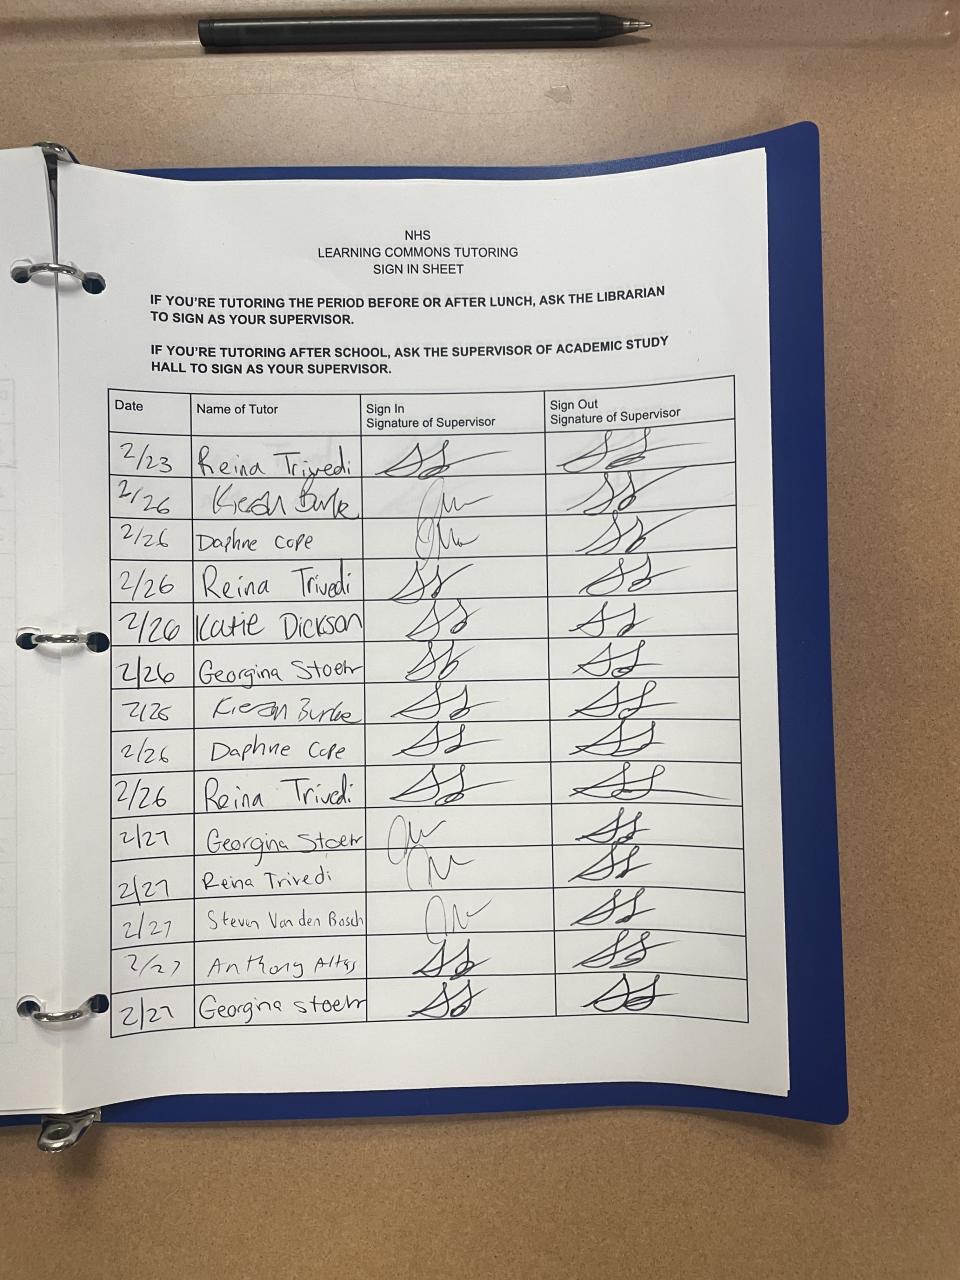 NHS
LEARNING COMMONS TUTORING
SIGN IN SHEET
IF YOU'RE TUTORING THE PERIOD BEFORE OR AFTER LUNCH, ASK THE LIBRARIAN
TO SIGN AS YOUR SUPERVISOR.
IF YOU'RE TUTORING AFTER SCHOOL, ASK THE SUPERVISOR OF ACADEMIC STUDY
HALL TO SIGN AS YOUR SUPERVISOR.
Date Name of Tutor Sign In Signature of Supervisor Sign Out Signature of Supervisor
2/23 Reina Trivedi
2/26 Kieran Burke
2/26 Daphne Cope
2/26 Reina Trivedi
2/26 Katie Dickson
2/26 Georgina Stoehr
2/26 Kieran Burke
2/26 Daphne Cope
2/26 Reina Trivedi
2/27 Georgina Stoehr
2/27 Reina Trivedi
2/27 Steven Van den Bosch
2/27 Anthony
2/27 Georgina Stoehr